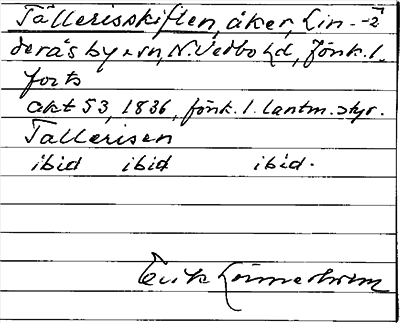 Tällerisskiften, åker, Lin- -2
derås by o sn, N. Vedbo hd, Jönk. l.
forts
akt 53, 1836, Jönk. l. lantm. styr.
Tallerisen
ibid ibid ibid.
Erik Linnerholm